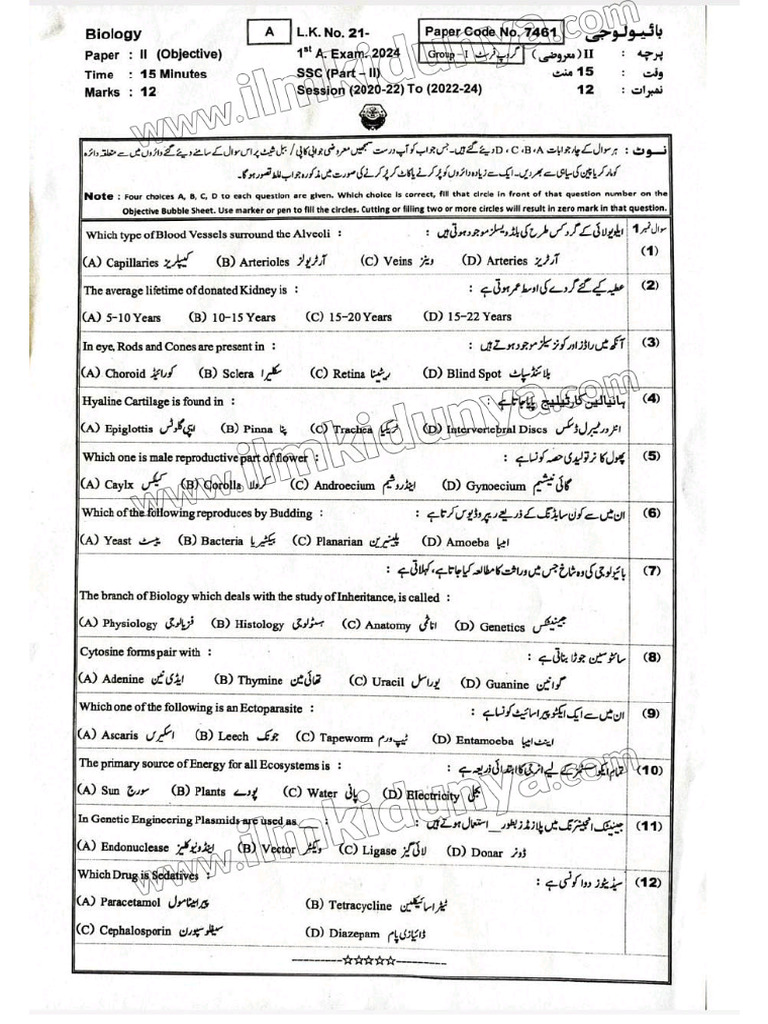 Biology
A
L.K. No. 21-
Paper Code No. 7461
بائیولوجی
Paper : II (Objective)
1st A. Exam. 2024
Group – I گروپ فرسٹ
پرچہ : II (معروضی)
Time : 15 Minutes
SSC (Part – II)
وقت : 15 منٹ
Marks : 12
Session (2020-22) To (2022-24)
نمبرات : 12
نوٹ : ہر سوال کے چار جوابات D ، C ، B ، A دیئے گئے ہیں۔ جس جواب کو آپ درست سمجھیں معروضی جوابی کاپی / ببل شیٹ پر اس سوال کے سامنے دیئے گئے دائروں میں سے متعلقہ دائرہ
کو مارکر یا پین کی سیاہی سے بھر دیں۔ ایک سے زیادہ دائروں کو پُر کرنے یا کاٹ کر پُر کرنے کی صورت میں مذکورہ جواب غلط تصور ہو گا۔
Note : Four choices A, B, C, D to each question are given. Which choice is correct, fill that circle in front of that question number on the
Objective Bubble Sheet. Use marker or pen to fill the circles. Cutting or filling two or more circles will result in zero mark in that question.
سوال نمبر 1
Which type of Blood Vessels surround the Alveoli : ایلویولائی کے گرد کس طرح کی بلڈ ویسلز موجود ہوتی ہیں : (1)
(A) Capillaries کیپلریز (B) Arterioles آرٹریولز (C) Veins وینز (D) Arteries آرٹریز
The average lifetime of donated Kidney is : عطیہ کیے گئے گردے کی اوسط عمر ہوتی ہے : (2)
(A) 5-10 Years (B) 10-15 Years (C) 15-20 Years (D) 15-22 Years
In eye, Rods and Cones are present in : آنکھ میں راڈز اور کونز سیلز موجود ہوتے ہیں : (3)
(A) Choroid کورائیڈ (B) Sclera سکلیرا (C) Retina ریٹینا (D) Blind Spot بلائنڈ سپاٹ
Hyaline Cartilage is found in : ہائیالین کارٹیلیج پایا جاتا ہے : (4)
(A) Epiglottis ایپی گلوٹس (B) Pinna پنا (C) Trachea ٹریکیا (D) Intervertebral Discs انٹرورٹیبرل ڈسکس
Which one is male reproductive part of flower : پھول کا نر تولیدی حصہ کونسا ہے : (5)
(A) Caylx کیلکس (B) Corolla کرولا (C) Androecium اینڈروشیم (D) Gynoecium گائی نیشیم
Which of the following reproduces by Budding : ان میں سے کون سا بڈنگ کے ذریعے ریپروڈیوس کرتا ہے : (6)
(A) Yeast ییسٹ (B) Bacteria بیکٹیریا (C) Planarian پلینیرین (D) Amoeba امیبا
بائیولوجی کی وہ شاخ جس میں وراثت کا مطالعہ کیا جاتا ہے، کہلاتی ہے : (7)
The branch of Biology which deals with the study of Inheritance, is called :
(A) Physiology فزیالوجی (B) Histology ہسٹولوجی (C) Anatomy اناٹمی (D) Genetics جینیٹکس
Cytosine forms pair with : سائٹوسین جوڑا بناتی ہے : (8)
(A) Adenine ایڈی نین (B) Thymine تھائی مین (C) Uracil یوراسل (D) Guanine گوانین
Which one of the following is an Ectoparasite : ان میں سے ایک ایکٹو پیراسائیٹ کونسا ہے : (9)
(A) Ascaris اسکیرس (B) Leech جونک (C) Tapeworm ٹیپ ورم (D) Entamoeba اینٹ امیبا
The primary source of Energy for all Ecosystems is : تمام ایکوسسٹمز کے لیے انرجی کا ابتدائی ذریعہ ہے : (10)
(A) Sun سورج (B) Plants پودے (C) Water پانی (D) Electricity بجلی
In Genetic Engineering Plasmids are used as ___ : جینیٹک انجینئرنگ میں پلازمڈز بطور استعمال ہوتے ہیں : (11)
(A) Endonuclease اینڈونیوکلیز (B) Vector ویکٹر (C) Ligase لائی گیز (D) Donar ڈونر
Which Drug is Sedatives : سیڈیٹوز دوا کونسی ہے : (12)
(A) Paracetamol پیراسیٹامول (B) Tetracycline ٹیٹراسائیکلین
(C) Cephalosporin سیفلوسپورن (D) Diazepam ڈائیازی پام
www.ilmkidunya.com
www.ilmkidunya.com
www.ilmkidunya.com
www.ilmkidunya.com